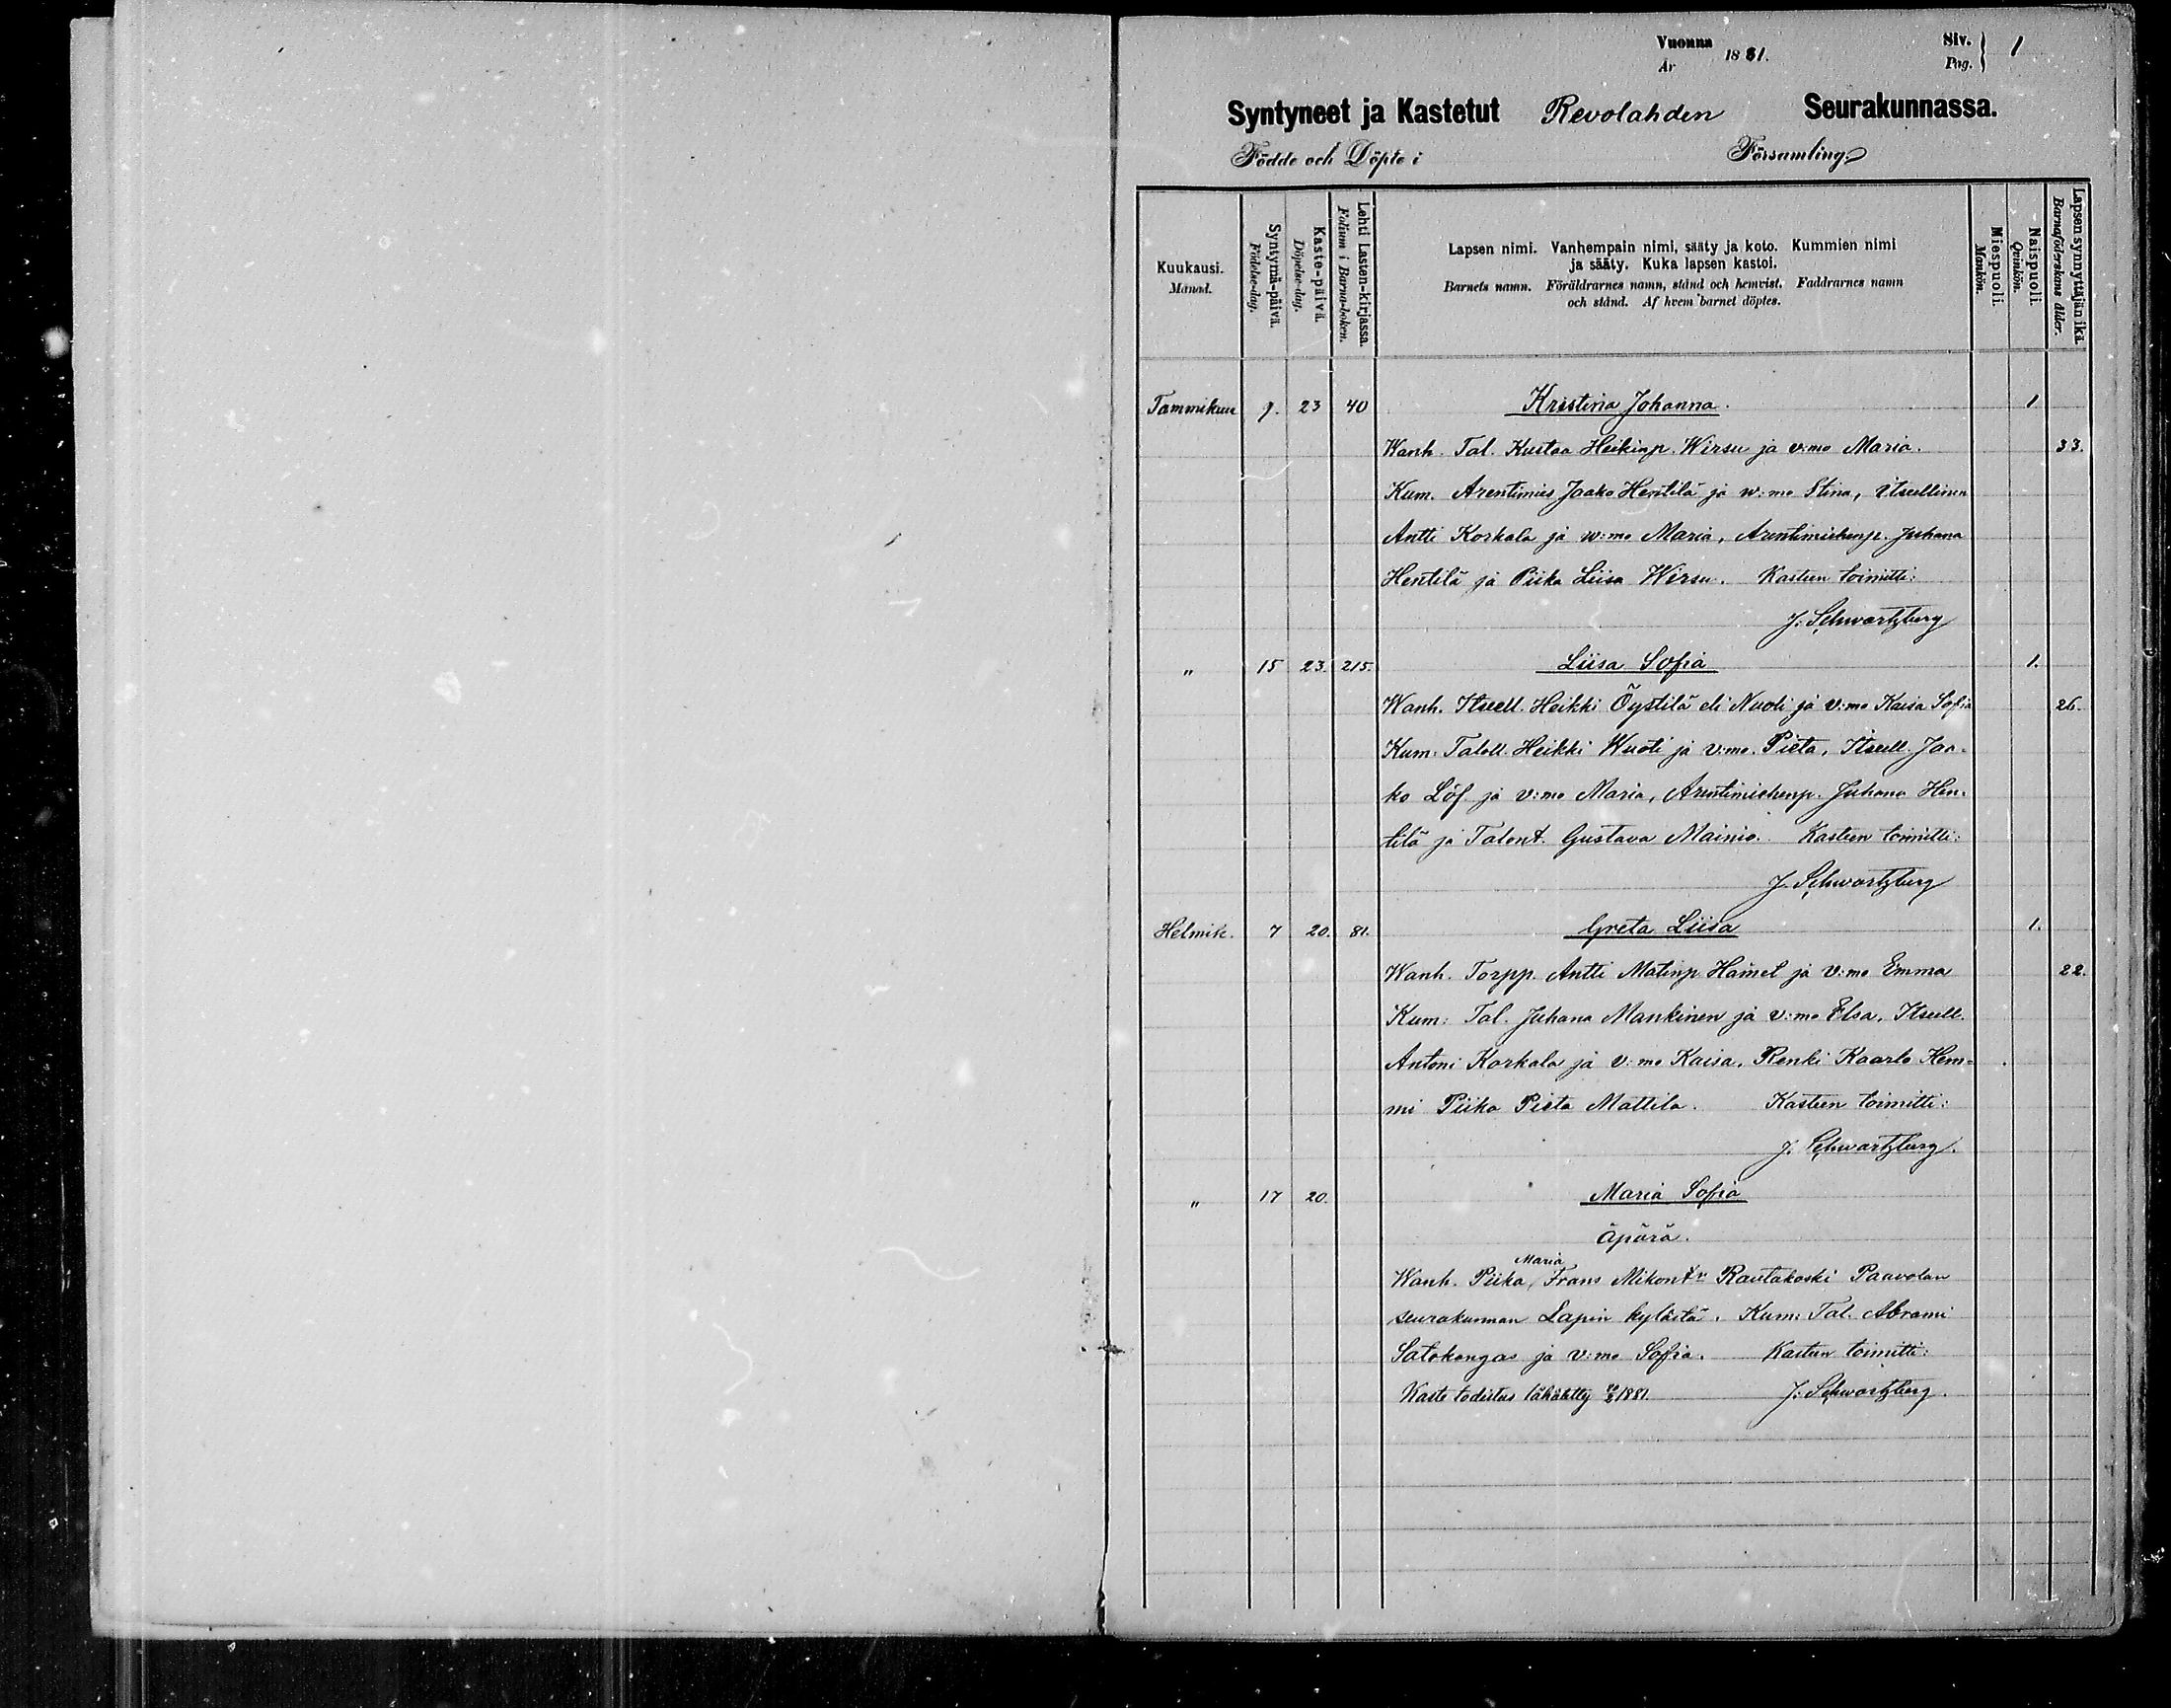 Vuonna 1881. Siv. 1
År Pag.
Syntyneet ja Kastetut Revolahden Seurakunnassa.
Födde och Döpte i Församling.
Kuukausi.
Månad.
Syntymä-päivä.
Födelse-dag.
Kaste-päivä.
Döpelse-dag.
Lehti Lasten-kirjassa.
Folium i Barna-boken.
Lapsen nimi. Vanhempain nimi, sääty ja koto. Kummien nimi
ja sääty. Kuka lapsen kastoi.
Barnets namn. Föräldrarnes namn, stånd och hemvist. Faddrarnes namn
och stånd. Af hvem barnet döptes.
Miespuoli.
Mankön.
Naispuoli.
Qvinkön.
Lapsen synnyttäjän ikä.
Barnaföderskans ålder.
Tammikuu 9. 23 40 Kristina Johanna. 1
Wanh. Tal. Kustaa Heikinp. Wirsu ja v:mo Maria. 33.
Kum. Arentimies Jaako Hentilä ja w:mo Stina, itsellinen
Antti Korkala ja w:mo Maria, Arentimiehenp. Juhana
Hentilä ja Piika Liisa Wirsu. Kasteen toimitti:
J. Schwartzberg
" 15 23. 215. Liisa Sofia 1.
Wanh. Itsell. Heikki Öystilä eli Nuoli ja v:mo Kaisa Sofia 26.
Kum: Taloll. Heikki Wuoti ja v:mo. Pieta, Itsell. Jaa-
ko Löf ja v:mo Maria, Arentimiehenp. Juhana Hen-
tilä ja Talont. Gustava Mainio. Kasteen toimitti:
J. Schwartzberg
Helmik. 7 20. 81. Greta Liisa 1.
Wanh. Torpp. Antti Matinp. Hamel ja v:mo Emma 22.
Kum: Tal. Juhana Mankinen ja v:mo Elsa, Itsell.
Antoni Korkala ja v:mo Kaisa, Renki Kaarlo Hem-
mi Piika Pieta Mattila. Kasteen toimitti:
J. Schwartzberg.
" 17 20. Maria Sofia
Äpärä.
Maria
Wanh. Piika Frans Mikont:r Rautakoski Paavolan
seurakunnan Lapin kylästä. Kum: Tal. Abrami
Satokangas ja v:mo Sofia. Kasteen toimitti:
Kaste todistus lähätetty 1881. J. Schwartzberg.